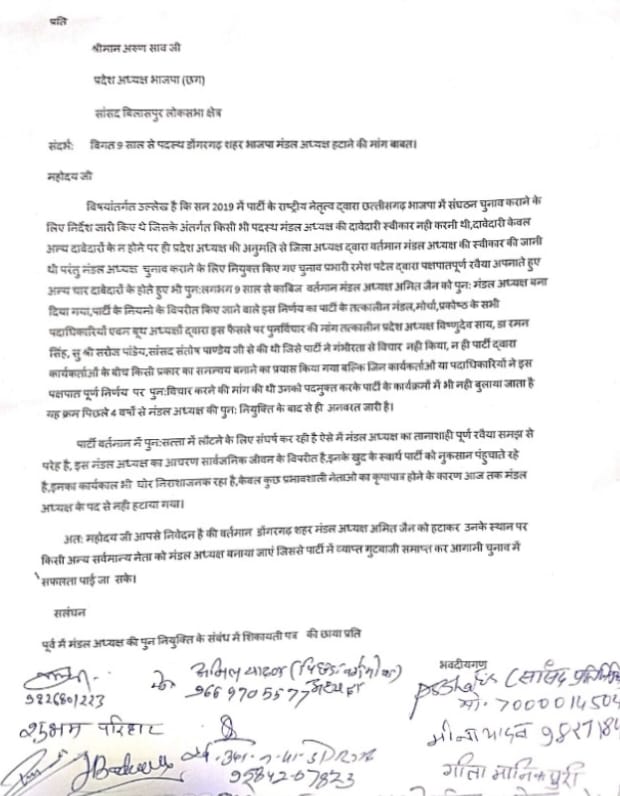 प्रति
श्रीमान अरुण साव जी
प्रदेश अध्यक्ष भाजपा (छग)
सांसद बिलासपुर लोकसभा क्षेत्र
संदर्भ: विगत 9 साल से पदस्थ डोंगरगढ़ शहर भाजपा मंडल अध्यक्ष हटाने की मांग बाबत।
महोदय जी
बिषयांतर्गत उल्लेख है कि सन 2019 में पार्टी के राष्ट्रीय नेतृत्व द्वारा छत्तीसगढ़ भाजपा में संघठन चुनाव कराने के
लिए निर्देश जारी किए थे जिसके अंतर्गत किसी भी पदस्थ मंडल अध्यक्ष की दावेदारी स्वीकार नही करनी थी,दावेदारी केवल
अन्य दावेदारों के न होने पर ही प्रदेश अध्यक्ष की अनुमति से जिला अध्यक्ष द्वारा वर्तमान मंडल अध्यक्ष की स्वीकार की जानी
थी परंतु मंडल अध्यक्ष चुनाव कराने के लिए नियुक्त किए गए चुनाव प्रभारी रमेश पटेल द्वारा पक्षपातपूर्ण रवैया अपनाते हुए
अन्य चार दावेदारों के होते हुए भी पुन:लगभग 9 साल से काबिज वर्तमान मंडल अध्यक्ष अमित जैन को पुन: मंडल अध्यक्ष बना
दिया गया,पार्टी के नियमो के विपरीत किए जाने वाले इस निर्णय का पार्टी के तत्कालीन मंडल,मोर्चा,प्रकोष्ठ के सभी
पदाधिकारियों एवम बूथ अध्यक्षों द्वारा इस फैसले पर पुनर्विचार की मांग तत्कालीन प्रदेश अध्यक्ष विष्णुदेव साय, डा रमन
सिंह, सु श्री सरोज पांडेय,सांसद संतोष पाण्डेय जी से की थी जिसे पार्टी ने गंभीरता से विचार नही किया, न ही पार्टी द्वारा
कार्यकर्ताओं के बीच किसी प्रकार का समन्वय बनाने का प्रयास किया गया बल्कि जिन कार्यकर्ताओं या पदाधिकारियों ने इस
पक्षपात पूर्ण निर्णय पर पुन:विचार करने की मांग की थी उनको पदमुक्त करके पार्टी के कार्यक्रमों में भी नही बुलाया जाता है
यह क्रम पिछले 4 वर्षो से मंडल अध्यक्ष की पुन: नियुक्ति के बाद से ही अनवरत जारी है।
पार्टी वर्तमान में पुन:सत्ता में लौटने के लिए संघर्ष कर रही है ऐसे में मंडल अध्यक्ष का तानाशाही पूर्ण रवैया समझ से
परेह है, इस मंडल अध्यक्ष का आचरण सार्वजनिक जीवन के विपरीत है,इनके खुद के स्वार्थ पार्टी को नुकसान पंहुचाते रहे
है,इनका कार्यकाल भी घोर निराशाजनक रहा है,केवल कुछ प्रभावशाली नेताओ का कृपापात्र होने के कारण आज तक मंडल
अध्यक्ष के पद से नही हटाया गया।
अत: महोदय जी आपसे निवेदन है की वर्तमान डोंगरगढ़ शहर मंडल अध्यक्ष अमित जैन को हटाकर उनके स्थान पर
किसी अन्य सर्वमान्य नेता को मंडल अध्यक्ष बनाया जाएं जिससे पार्टी में व्याप्त गुटबाजी समाप्त कर आगामी चुनाव में
सफलता पाई जा सके।
सलंघन
पूर्व में मंडल अध्यक्ष की पुन नियुक्ति के संबंध में शिकायती पत्र की छाया प्रति
भवदीयगण
9826801223
अनिल यादव
9669705577 अध्यक्ष
(सांसद प्रतिनिधि
मो. 7000014504
शुभम परिहार
मीना यादव 9827184
95842-07823
गीता मानिकपुरी